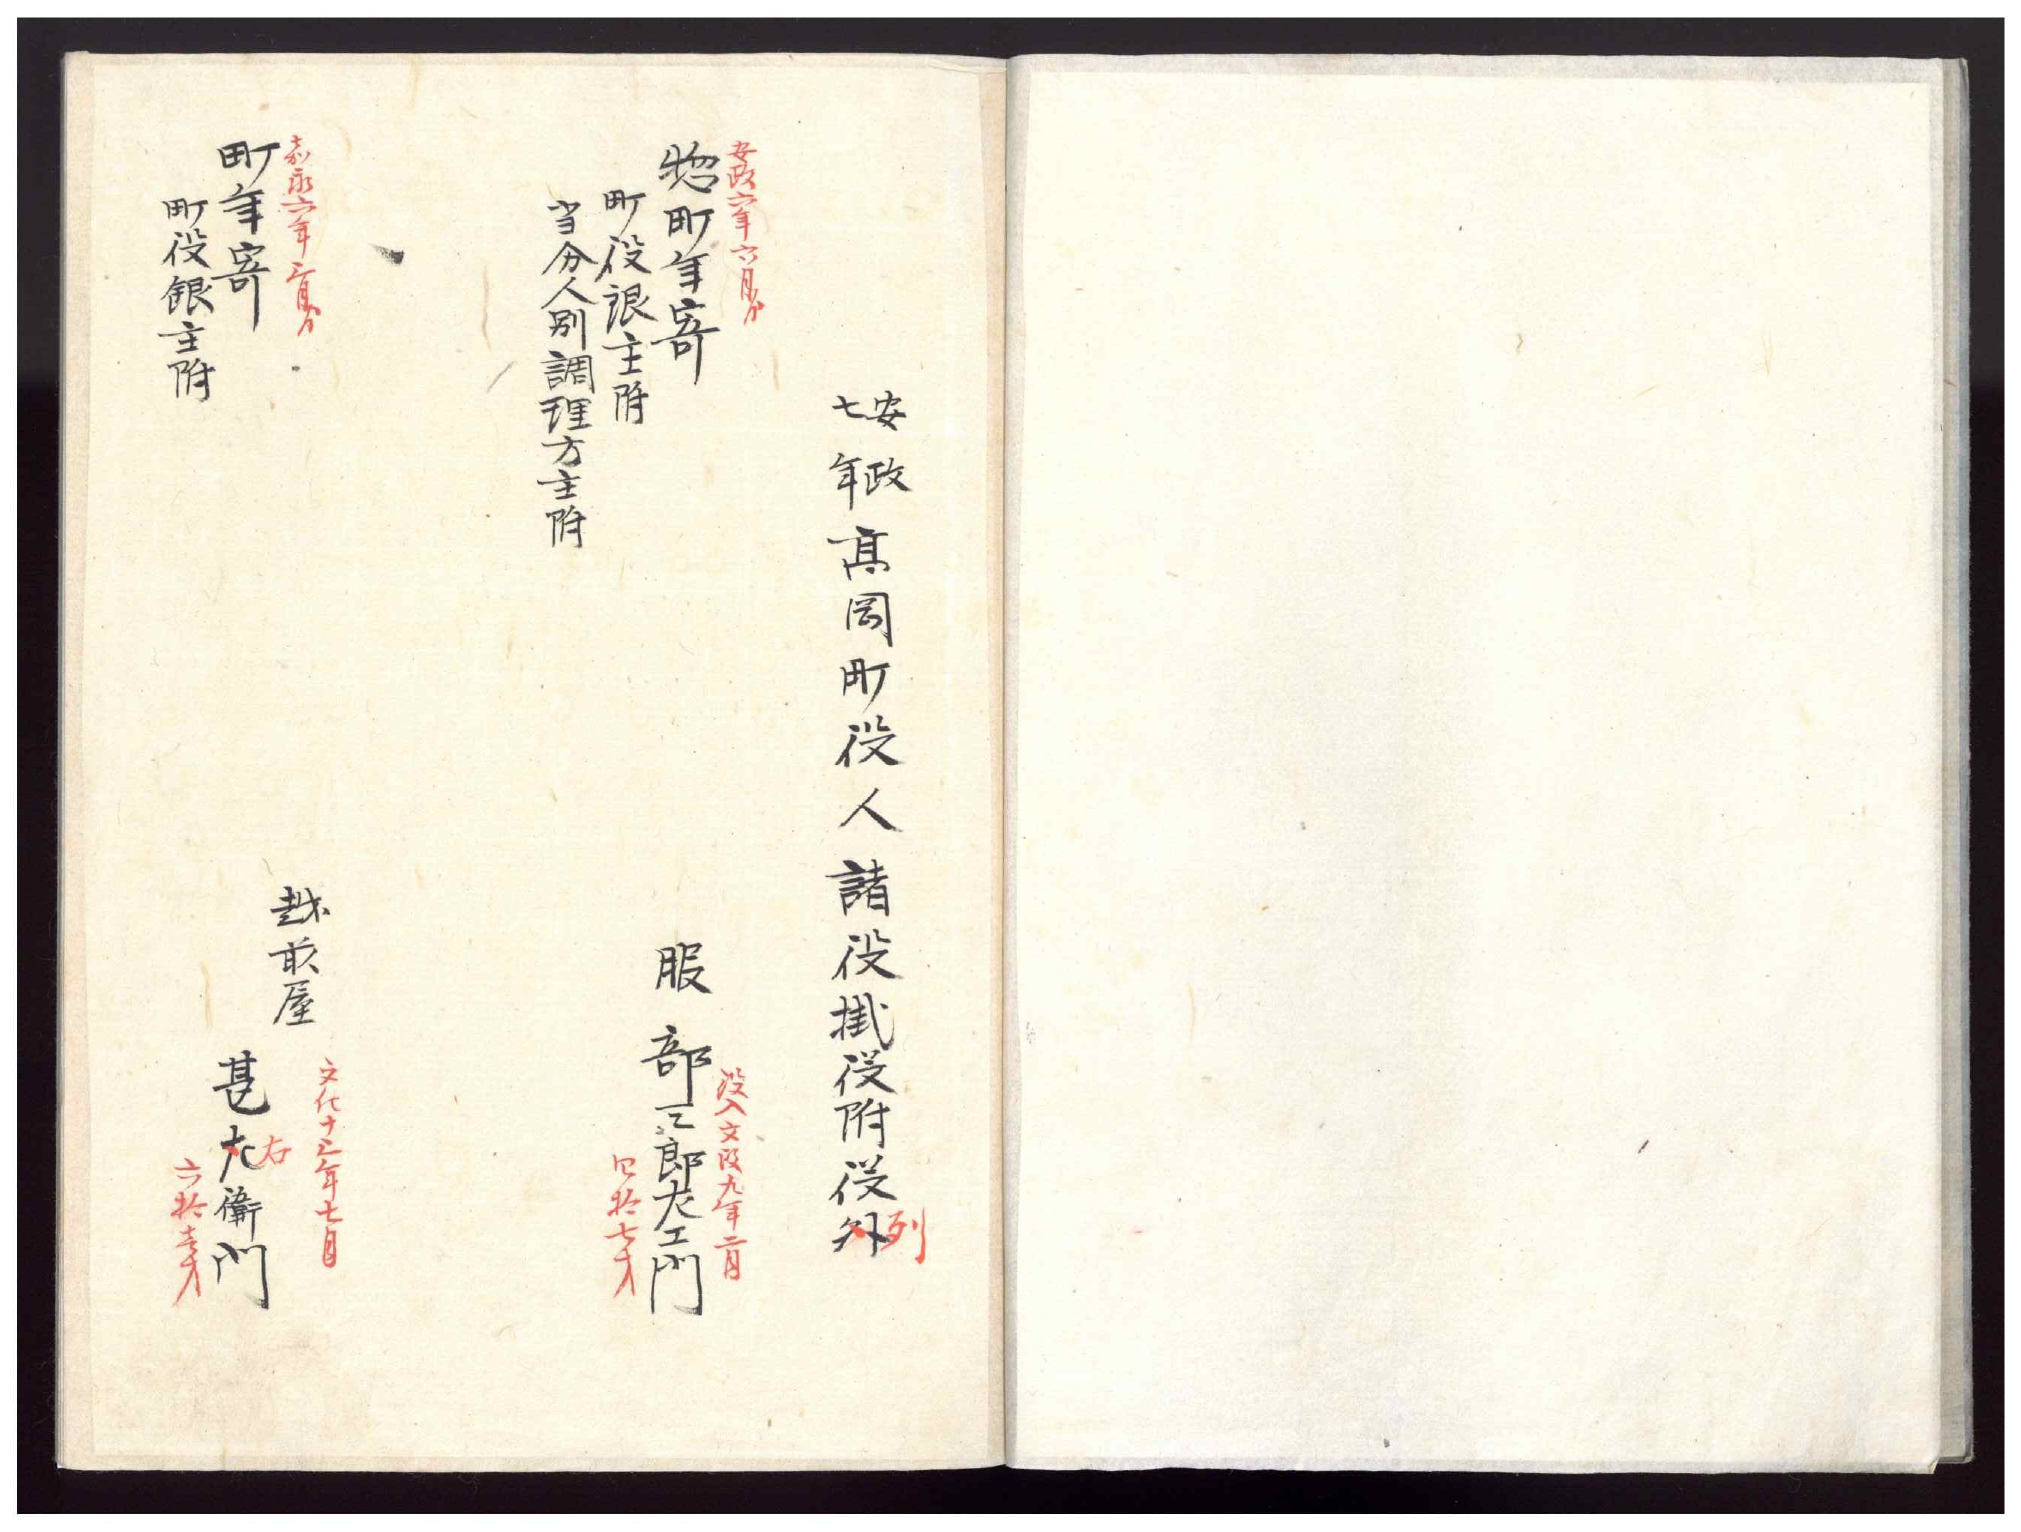 安政
七年
高岡町役人諸役掛役附役外
列
安政六年六月分
惣町年寄
町役銀主附
当分人別調理方主附
服部三郎左エ門
没入文政九年二月
四拾七才
嘉永六年二月分
町年寄
町役銀主附
越前屋
甚左衛門
右
文化十三年七月
六拾壱才